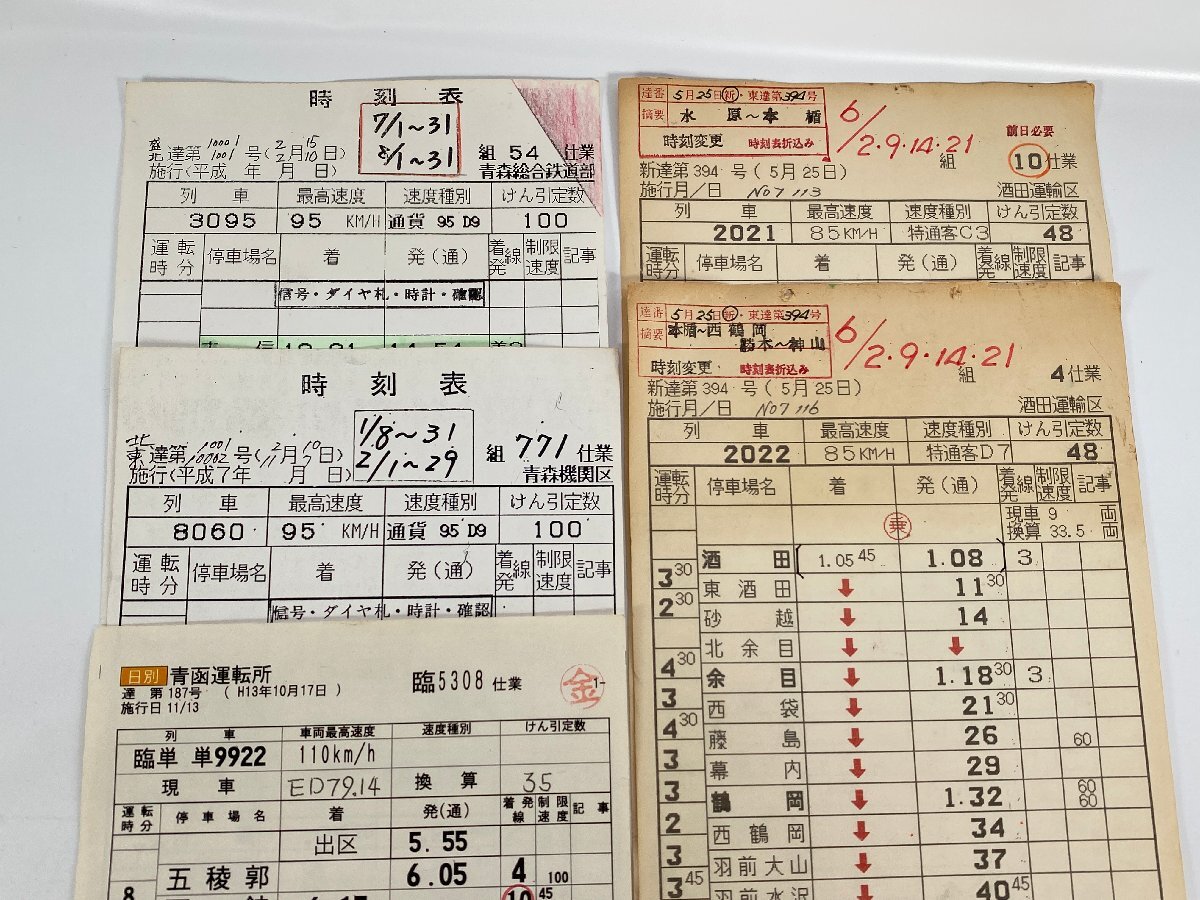 時刻表
7/1~31
8/1~31
達第1001号(2月10日)
組 54 仕業
施行(平成 年 月 日)
青森総合鉄道部
列車 最高速度 速度種別 けん引定数
3095 95 KM/H 通貨 95 D9 100
運転時分 停車場名 着 発(通) 着発線 制限速度 記事
信号・ダイヤ札・時計・確認
時刻表
1/8~31
2/1~29
組 771 仕業
施行(平成7年 月 日)
青森機関区
列車 最高速度 速度種別 けん引定数
8060 95 KM/H 通貨 95 D9 100
運転時分 停車場名 着 発(通) 着発線 制限速度 記事
信号・ダイヤ札・時計・確認
日別 青函運転所
達 第187号 ( H13年10月17日 )
施行日 11/13
臨5308 仕業
金
列車 車両最高速度 速度種別 けん引定数
臨単 単9922 110km/h
現車 ED79.14 換算 35
運転時分 停車場名 着 発(通) 着発線 制限速度 記事
出区 5.55
五稜郭 6.05 4 100
達番 5月25日(新)・東達第394号
摘要 水原~本楯
時刻変更 時刻表折込み
6/2.9.14.21
前日必要
組 10仕業
新達第 394 号 ( 5月25日)
施行月/日 No7 113
酒田運輸区
列車 最高速度 速度種別 けん引定数
2021 85KM/H 特通客C3 48
運転時分 停車場名 着 発(通) 着発線 制限速度 記事
達番 5月25日(新)・東達第394号
摘要 本楯~西鶴岡
勝木~神山
時刻変更 時刻表折込み
6/2.9.14.21
組 4仕業
新達第 394 号 ( 5月25日)
施行月/日 No7 116
酒田運輸区
列車 最高速度 速度種別 けん引定数
2022 85KM/H 特通客D7 48
運転時分 停車場名 着 発(通) 着発線 制限速度 記事
乗
現車 9 両
換算 33.5 両
酒田 1.05 45 1.08 3
3 30
東酒田 ↓ 11 30
2 30
砂越 ↓ 14
北余目 ↓ ↓
4 30
余目 ↓ 1.18 30 3
3
西袋 ↓ 21 30
4 30
藤島 ↓ 26 60
3
幕内 ↓ 29
3
鶴岡 ↓ 1.32 60 60
2
西鶴岡 ↓ 34
3
羽前大山 ↓ 37
3 45
羽前水沢 ↓ 40 45